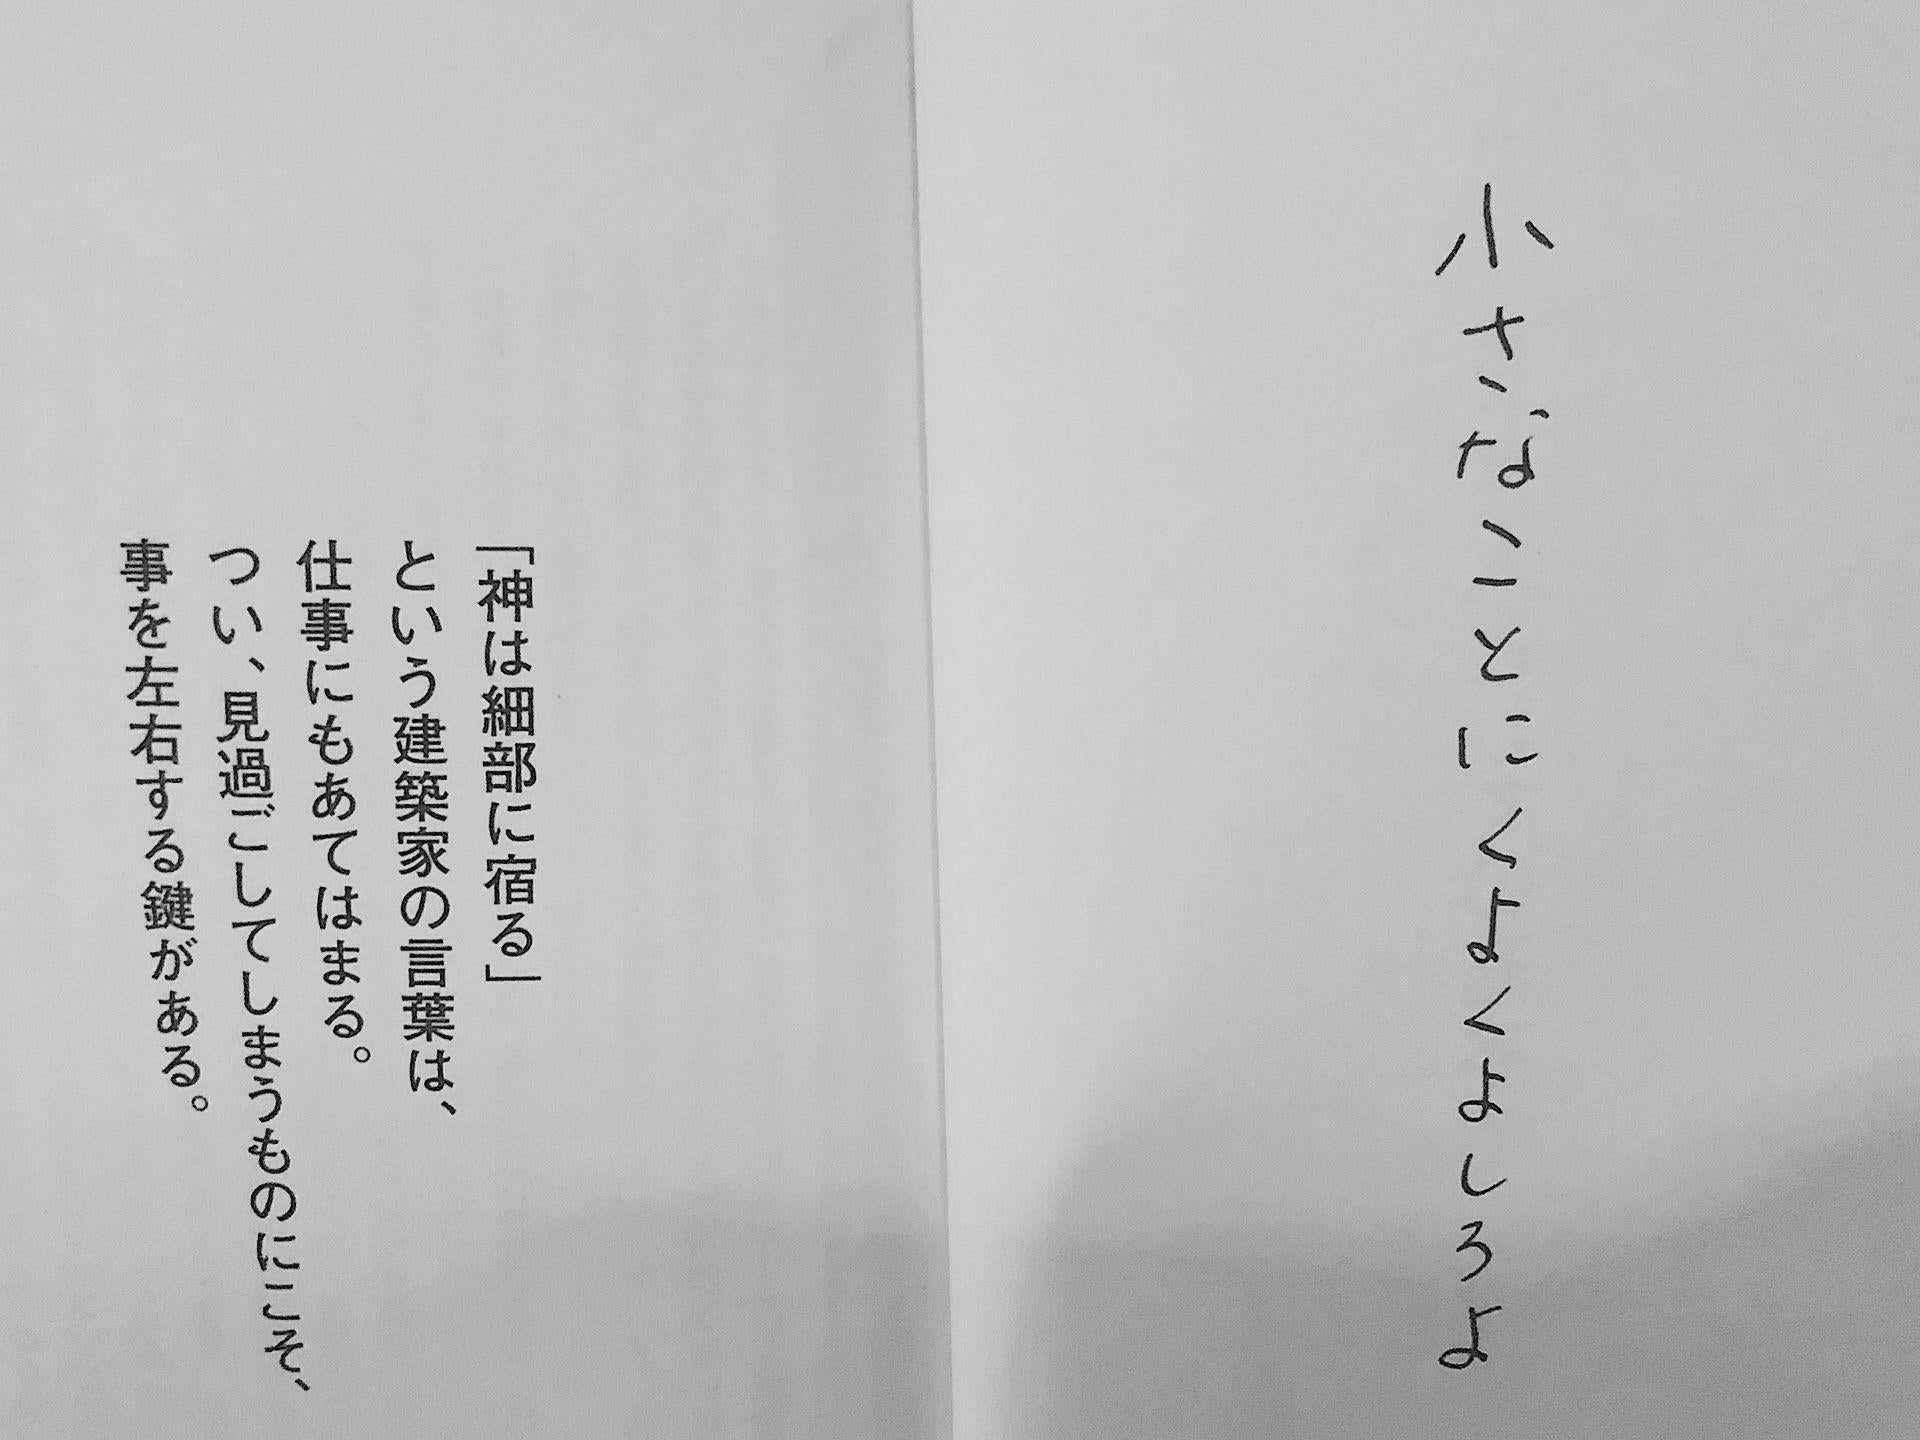 小さなことにくよくよしろよ
「神は細部に宿る」
という建築家の言葉は、
仕事にもあてはまる。
つい、見過ごしてしまうものにこそ、
事を左右する鍵がある。